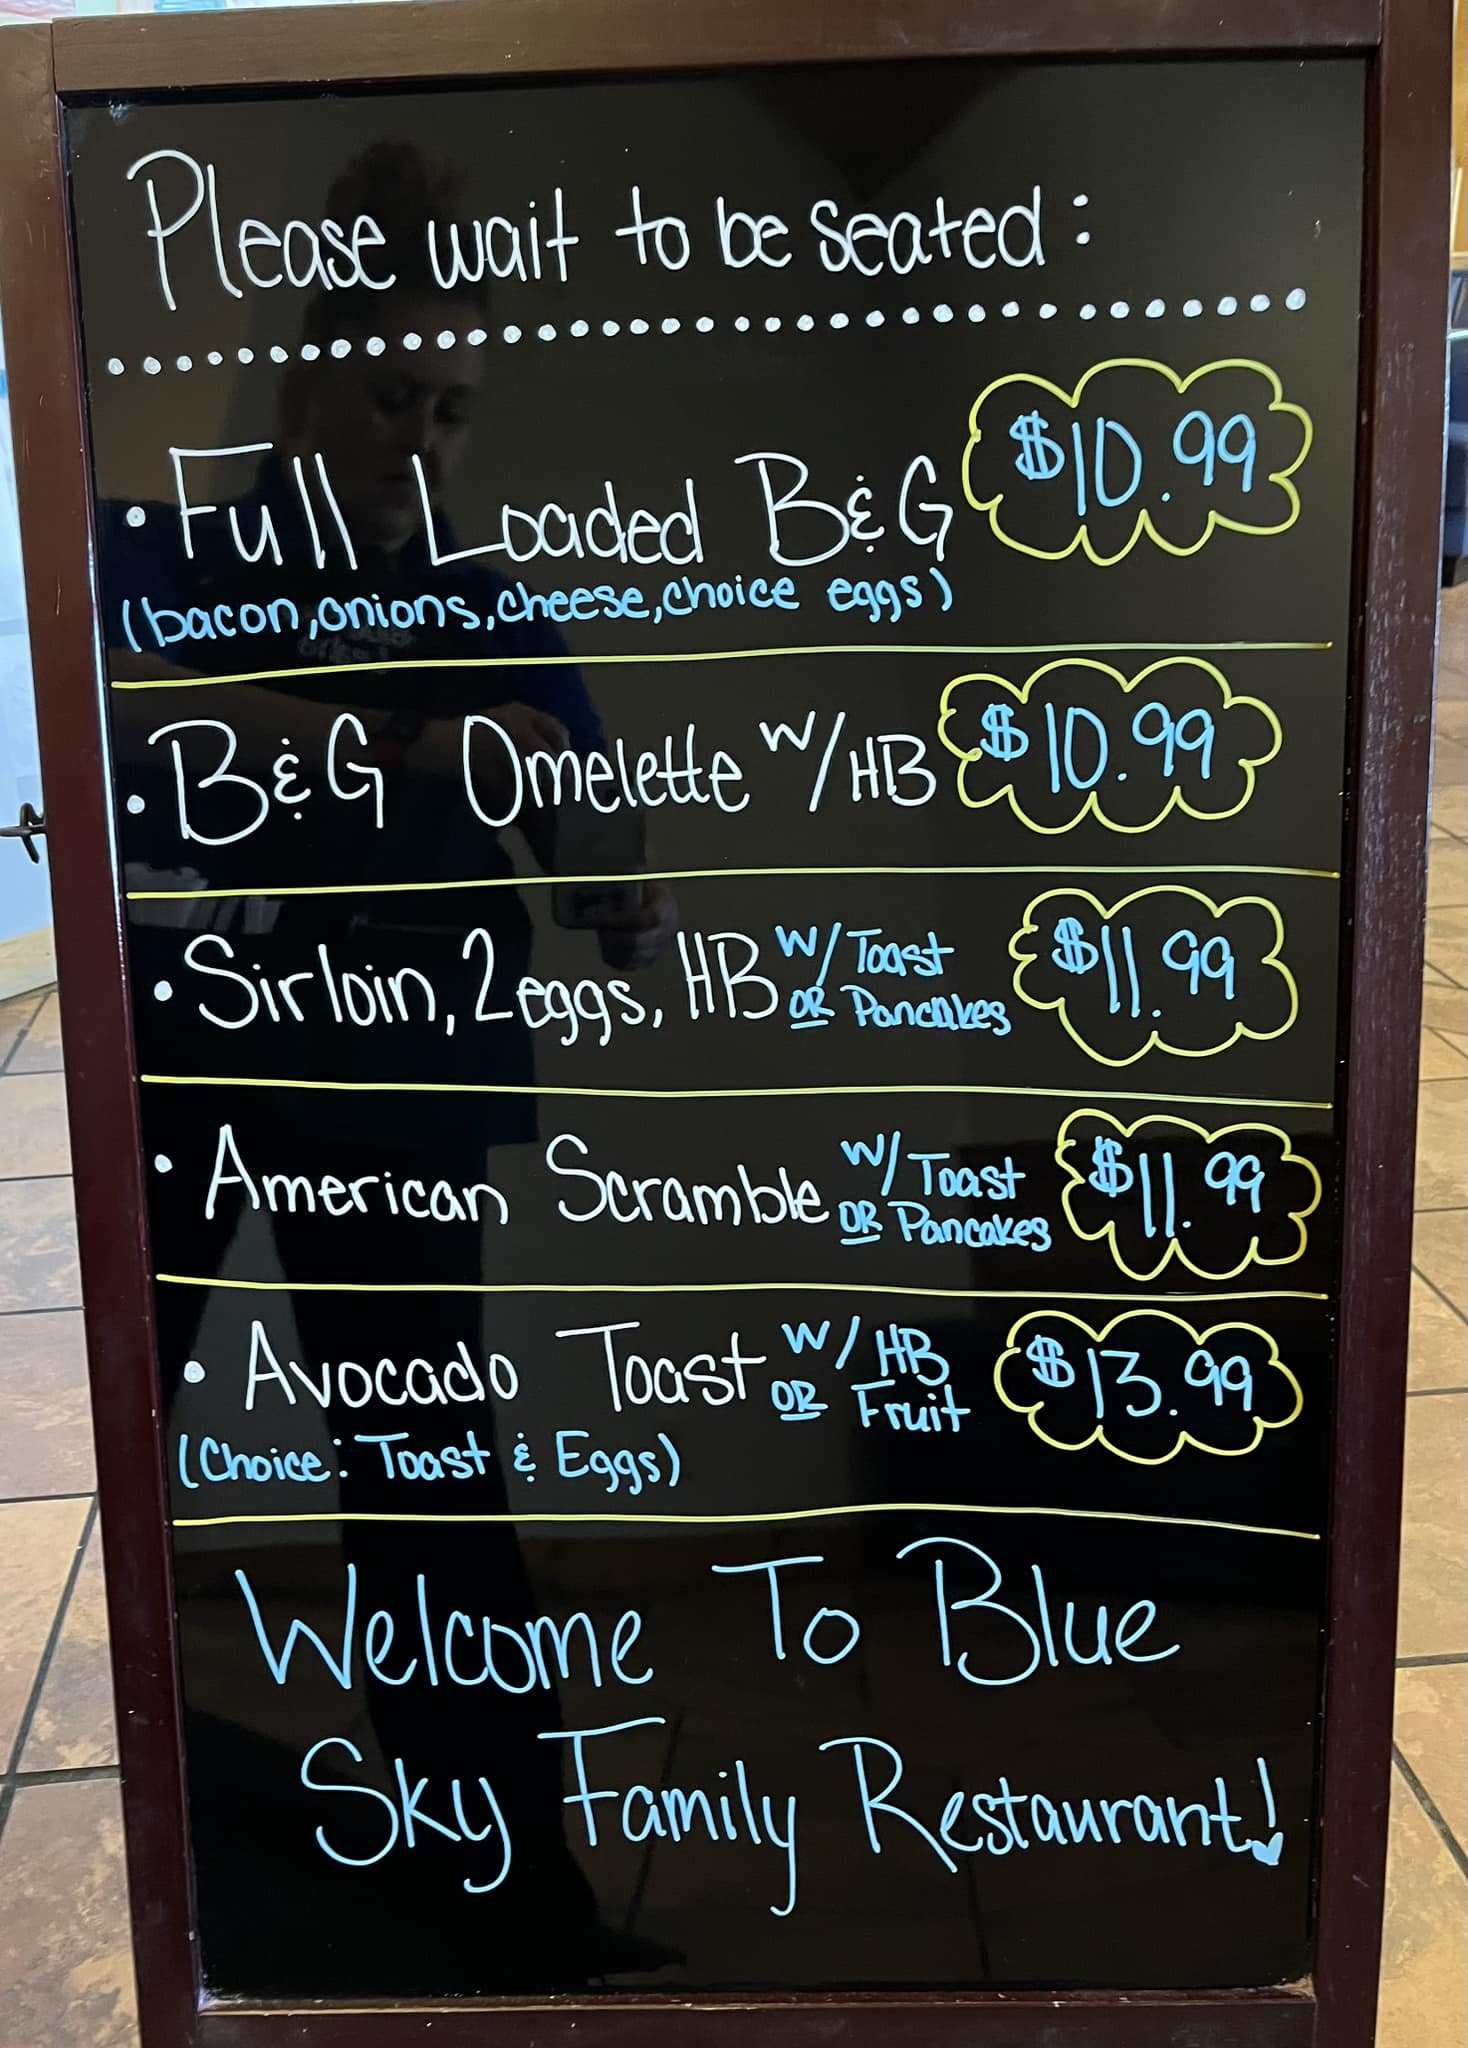 Please wait to be seated:
• Full Loaded B&G $10.99
(bacon, onions, cheese, choice eggs)
• B&G Omelette w/HB $10.99
• Sirloin, 2 eggs, HB w/ Toast OR Pancakes $11.99
• American Scramble w/ Toast OR Pancakes $11.99
• Avocado Toast w/ HB OR Fruit $13.99
(Choice: Toast & Eggs)
Welcome To Blue
Sky Family Restaurant!